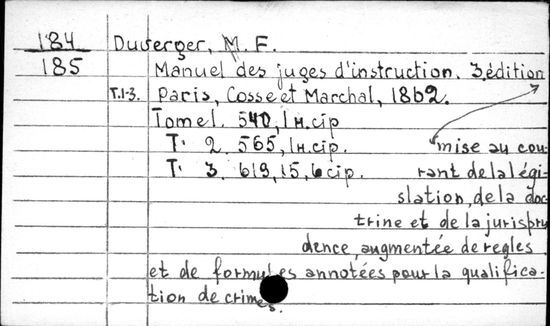 184 Duverger, M. F.
185 Manuel des juges d'instruction. 3.édition
T.1-3. Paris, Cosse et Marchal, 1862.
Tome I. 540, 1 н.стр
T. 2. 565, 1 н.стр.
"mise au cou-
T. 3. 619, 15, 6 стр.
rant de la légi-
slation, de la doc
trine et de la jurispru
dence, augmentée de regles
et de formules annotées pour la qualifica-
tion de crimes.